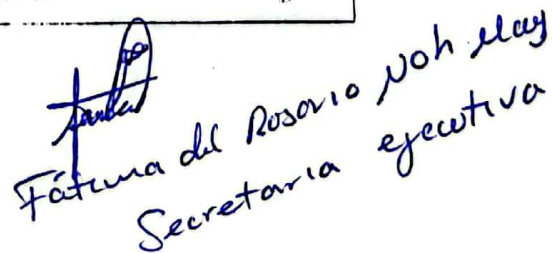 Fátima del Rosario Noh May
Secretaria ejecutiva